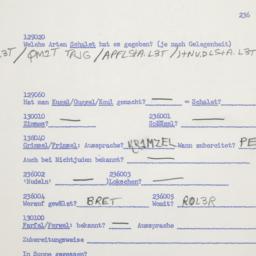 236
129020
Welche Arten Schalet hat es gegeben? (je nach Gelegenheit)
L3T / QM2T TRJG / APFLSțA.L3T / J+NV.DLS+A.L3T
129060
Hat man Kugel/Guggel/Koul gemacht? — = Schalet? —
130010 236001
Zimmes? — Schünel? —
136040
Grimsel/Frimsel: Aussprache? KRAMZEL Wann zubereitet? PE
Auch bei Nichtjuden bekannt? —
236002 236003
'Nudeln' — Lokschen? —
236004 236005
Worauf gewälzt? BRET Womit? ROL3R
130100
Farfel/Ferwel: bekannt? — Aussprache
Zubereitungsweise
In Suppe gegessen?